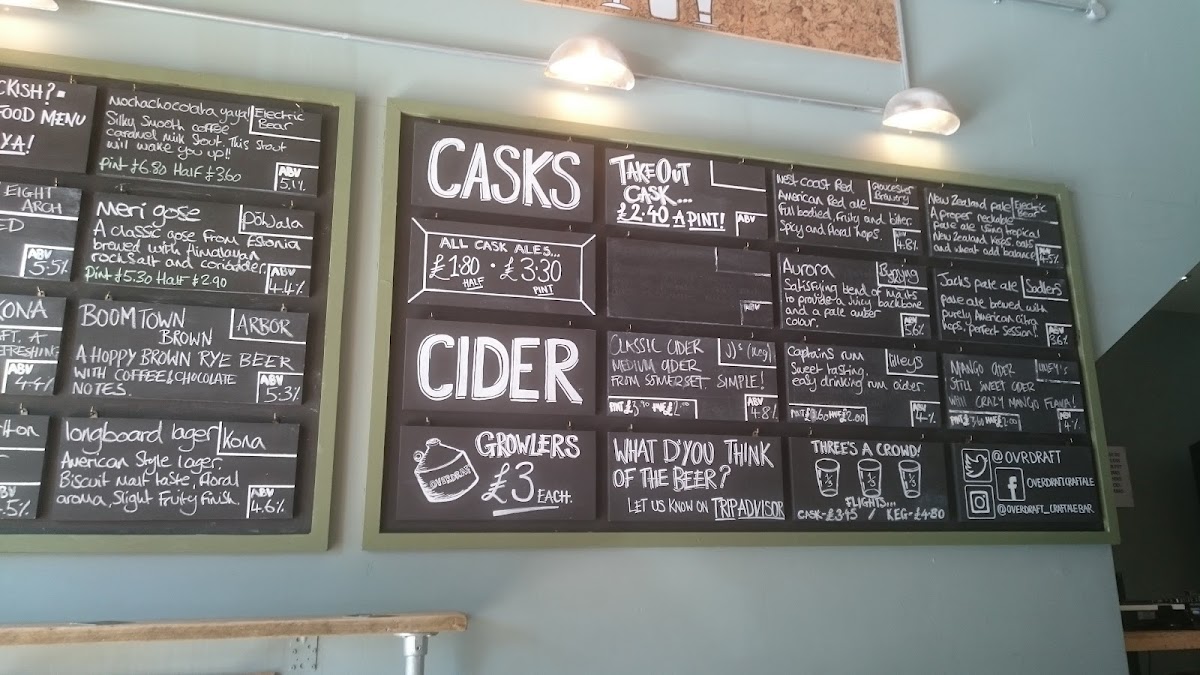 CKISH?
FOOD MENU
YA!
Mochachocolata yaya!
Electric
Bear
Silky Smooth coffee
caramel milk stout. This Stout
will wake you up!!
Pint £6.80 Half £3.60
ABV
5.1%
EIGHT
ARCH
ED
ABV
5.5%
Meri gose
Põhjala
A classic gose from Estonia
brewed with Himalayan
rock salt and coriander.
Pint £5.30 Half £2.90
ABV
4.4%
KONA
FT. A
REFRESHING
ABV
4.4%
BOOMTOWN
BROWN
ARBOR
A HOPPY BROWN RYE BEER
WITH COFFEE & CHOCOLATE
NOTES.
ABV
5.3%
ABV
.5%
longboard lager
Kona
American Style lager.
Biscuit malt taste, floral
aroma, slight fruity finish.
ABV
4.6%
CASKS
ALL CASK ALES...
£1.80 · £3:30
HALF
PINT
CIDER
GROWLERS
£3 EACH.
OVERDRAFT
TAKE OUT
CASK...
£2.40 A PINT!
ABV
West Coast Red
Gloucester
Brewery
American Red ale
full bodied, fruity and bitter
spicy and floral hops.
ABV
4.8%
New Zealand pale
Electric
Bear
A proper neckable
pale ale using tropical
New Zealand hops. oats
and wheat add balance
ABV
4.5%
ABV
Aurora
Satisfying blend of malts
to provide a juicy backbone
and a pale amber
colour.
ABV
5.6%
Jacks pale ale
Sadlers
pale ale brewed with
purely American citra
hops. perfect session!
ABV
3.6%
CLASSIC CIDER
MEDIUM CIDER
FROM SOMERSET. SIMPLE!
ABV
4.8%
Captains rum
lilleys
Sweet tasting,
easy drinking rum cider.
ABV
4%
MANGO CIDER
STILL SWEET CIDER
WITH CRAZY MANGO FLAVA!
ABV
4%
WHAT D'YOU THINK
OF THE BEER?
LET US KNOW ON TRIPADVISOR
THREE'S A CROWD!
1/3 1/3 1/3
FLIGHTS...
CASK-£3.45 / KEG-£4.80
@OVRDRAFT
f OVERDRAFTCRAFTALE
@OVERDRAFT_CRAFTALEBAR